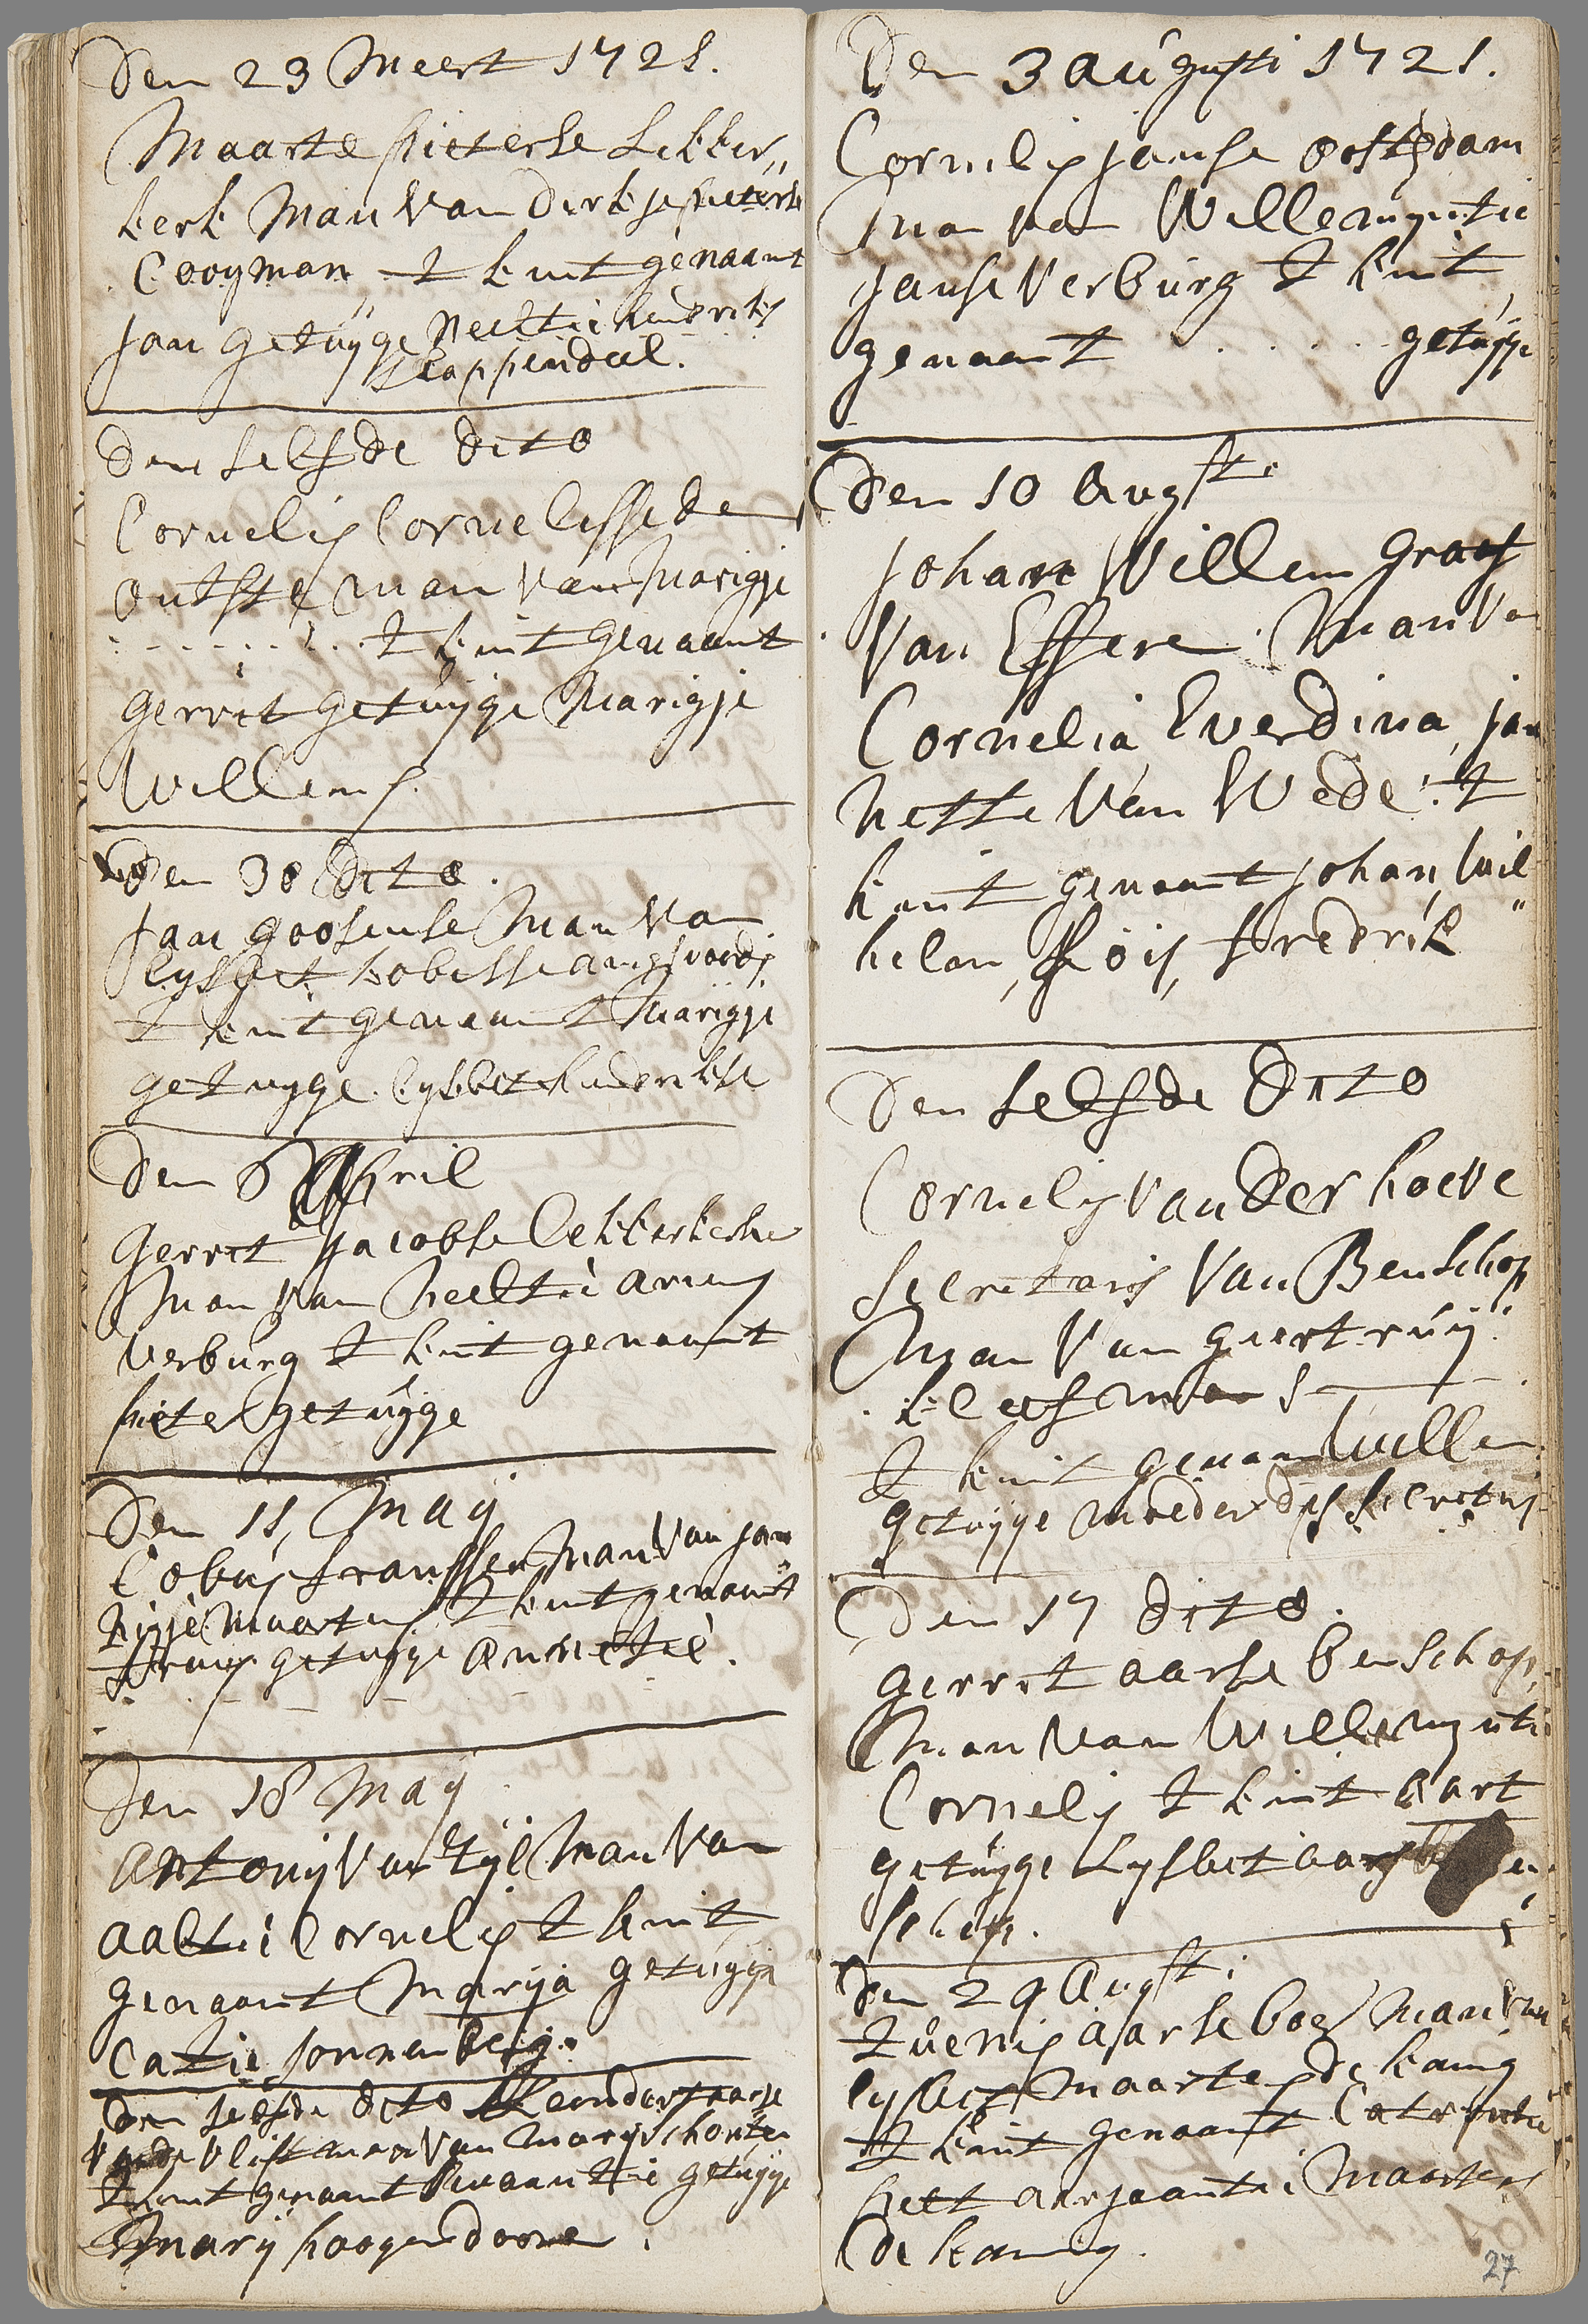 Den 23 Meert 1721.
Maarte pieterse Lekker„
kerk Man van Dirkje pieterse
Cooyman t kint genaamt
Jan getuyge Neeltie hendriks
Cappendeel.
den selfde dito
Cornelis Cornelisse den
outste man van Marigje
t kint genaamt
gerrit getuijge Marigje
Willems
den 30 dito.
Jan goosense Man van
lysbet kobesse
t kint genaamt Marigje
getuyge lysbet hendrikse
den 6 April
gerrit Jacobse Lekkerkerke
Man van Neeltie ariens
verburg t kint genaamt
pieter getuyge
Den 11 Maij
Cobus franssen Man van Jan
nigje Maartens t kint genaamt
frans getuyge Annetie.
Den 18 Maij
Antonij van Tijl Man van
aaltie Cornelis t kint
genaamt Marija getuyge
Catie sonnenberg.
den selfde dito
vande vlist man van Marij schouten
t kint genaamt getuyge
Marij hoogendoorn.
Den 3 augusti 1721.
Cornelis Janse oostrdam
man van Willemyntie
Janse Verburg t kint
genaamt . . . . . getuyge
Den 10 Augsti
Johan Willem graef
van Effere Man van
Cornelia Everdina Jan
nette van Wede t
kint genaamt Johan wil
helm, frederik
Den selfde Dito
Cornelis van der hoeve
Secretaris van Benschop
Man van geertruij
kleefman s
t kint genaam Willem
getuyge moeder des secretaris
Den 17 dito.
gerrit aarse benschop,
Man van Willemynti
Cornelis t kint Aart
getuyge Lysbet aars ben
schop.
Den 29 Augsti
tuenis aarse boer Man van
lysbet Maartens de kaning
t kint genaamt Catryntie
pett aarjaantie Maartens
de kaning.
27